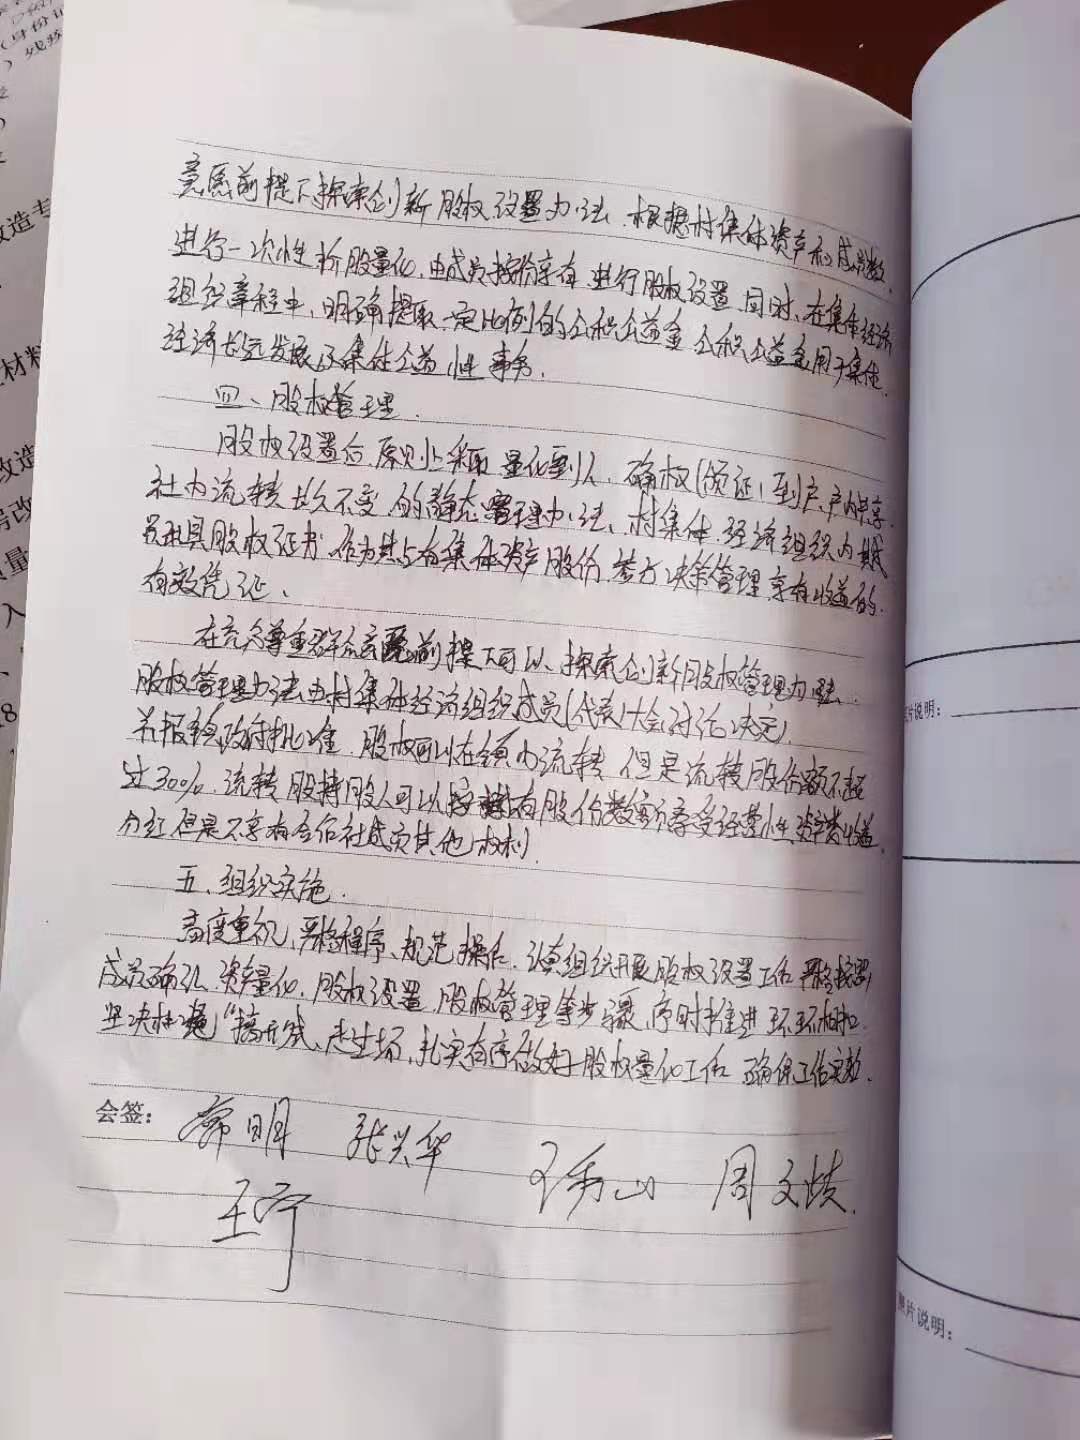 意愿前提下探索创新股权设置办法。根据村集体资产和成员数,
进行一次性折股量化,由成员按份享有,进行股权设置。同时,在集体经济
组织章程中,明确提取一定比例的公积公益金,公积公益金用于集体
经济长远发展及集体公益性事务。
四、股权管理.
股权设置后,原则上采取量化到人、确权(颁证)到户、户内共享、
社内流转、长久不变的静态管理办法、村集体经济组织内成
员出具股权证书,作为其占有集体资产股份、参与决策管理、享有收益的
有效凭证、
在充分尊重群众意愿前提下可以探索创新股权管理办法
股权管理办法由村集体经济组织成员(代表)大会讨论决定,
并报镇政府批准。股权可以在镇内流转,但是流转股份额不超
过30%。流转股持股人可以按持有股份数额享受经营性资产收益
分红但是不享有合作社成员其他权利.
五、组织实施.
高度重视、严格程序、规范操作。认真组织开展股权设置工作,严格按照
成员确认、资产量化、股权设置、股权管理等步骤,序时推进,环环相扣,
坚决杜绝"搞形式、走过场,扎实有序做好股权量化工作,确保工作实效.
会签:
张兴华
周文
王宁
照片说明:
照片说明:
改造专
材料
改造
房改
质量
入